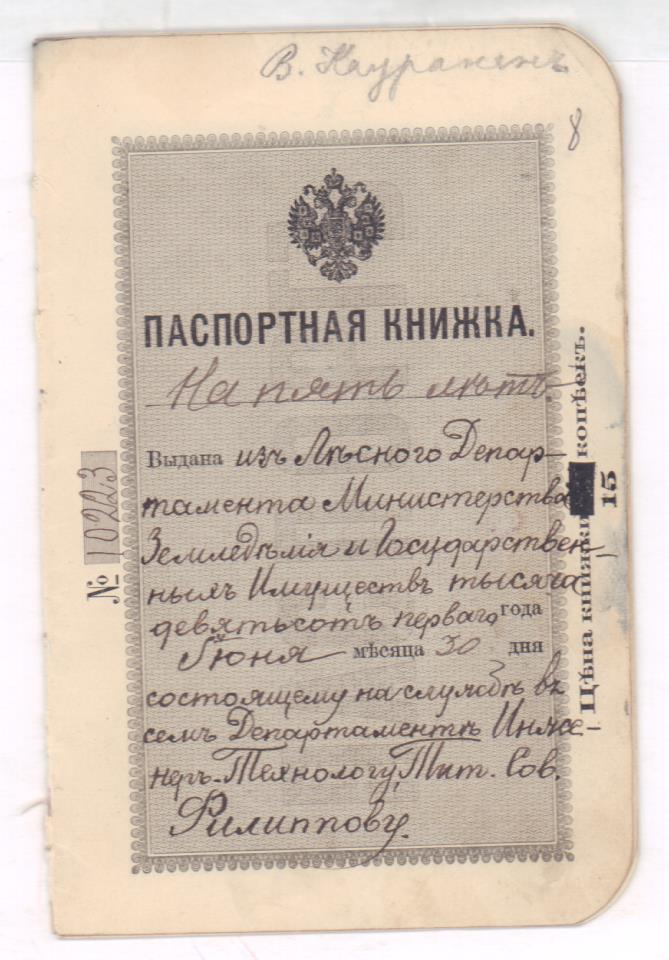 В. Кауранен
8
ПАСПОРТНАЯ КНИЖКА.
На пять лѣтъ.
Выдана изъ Лѣсного Депар-
тамента Министерства
Земледѣлія и Государствен-
ныхъ Имуществъ тысяча
девятьсотъ перваго года
Іюня мѣсяца 30 дня
состоящему на службѣ въ
семъ Департаментѣ Инже-
неръ-Технологу, Тит. Сов.
Филиппову.
№ 10223
Цѣна книжки копѣекъ.
15